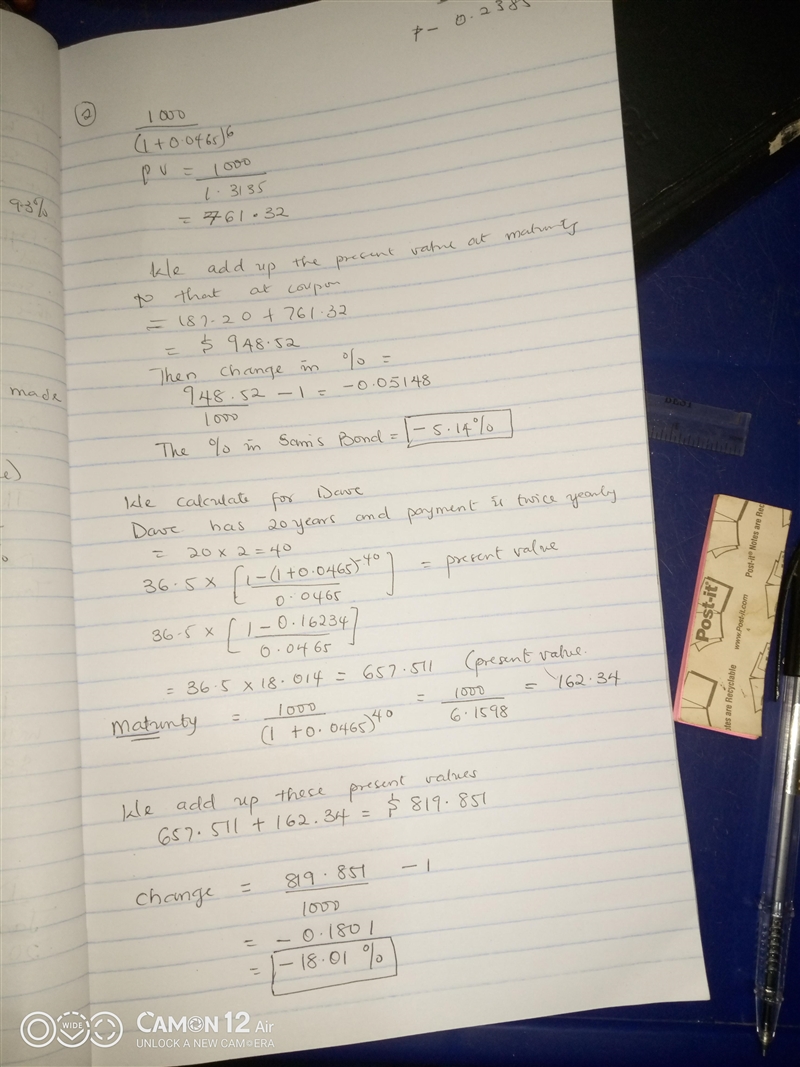 7- 0.2385
②
1000
(1+0.0465)^6
PV = 1000
1.3135
= 761.32
9.3%
We add up the present value at maturity
to that at coupon
= 187.20 + 761.32
= $ 948.52
Then change in % =
948.52 - 1 = -0.05148
1000
made
The % in Sam's Bond = -5.14%
e)
We calculate for Dave
Dave has 20 years and payment is twice yearly
= 20 x 2 = 40
36.5 x [1-(1+0.0465)^-40] = present value
0.0465
36.5 x [1-0.16234]
0.0465
= 36.5 x 18.014 = 657.511 (present value.
Maturity = 1000 = 1000 = 162.34
(1+0.0465)^40 6.1598
We add up these present values
657.511 + 162.34 = $ 819.851
Change = 819.851 - 1
1000
= - 0.1801
= -18.01 %
BEST
Post-it
www.Post-it.com
Post-it® Notes are Rec
tes are Recyclable
WIDE
CAMON 12 Air
UNLOCK A NEW CAMERA